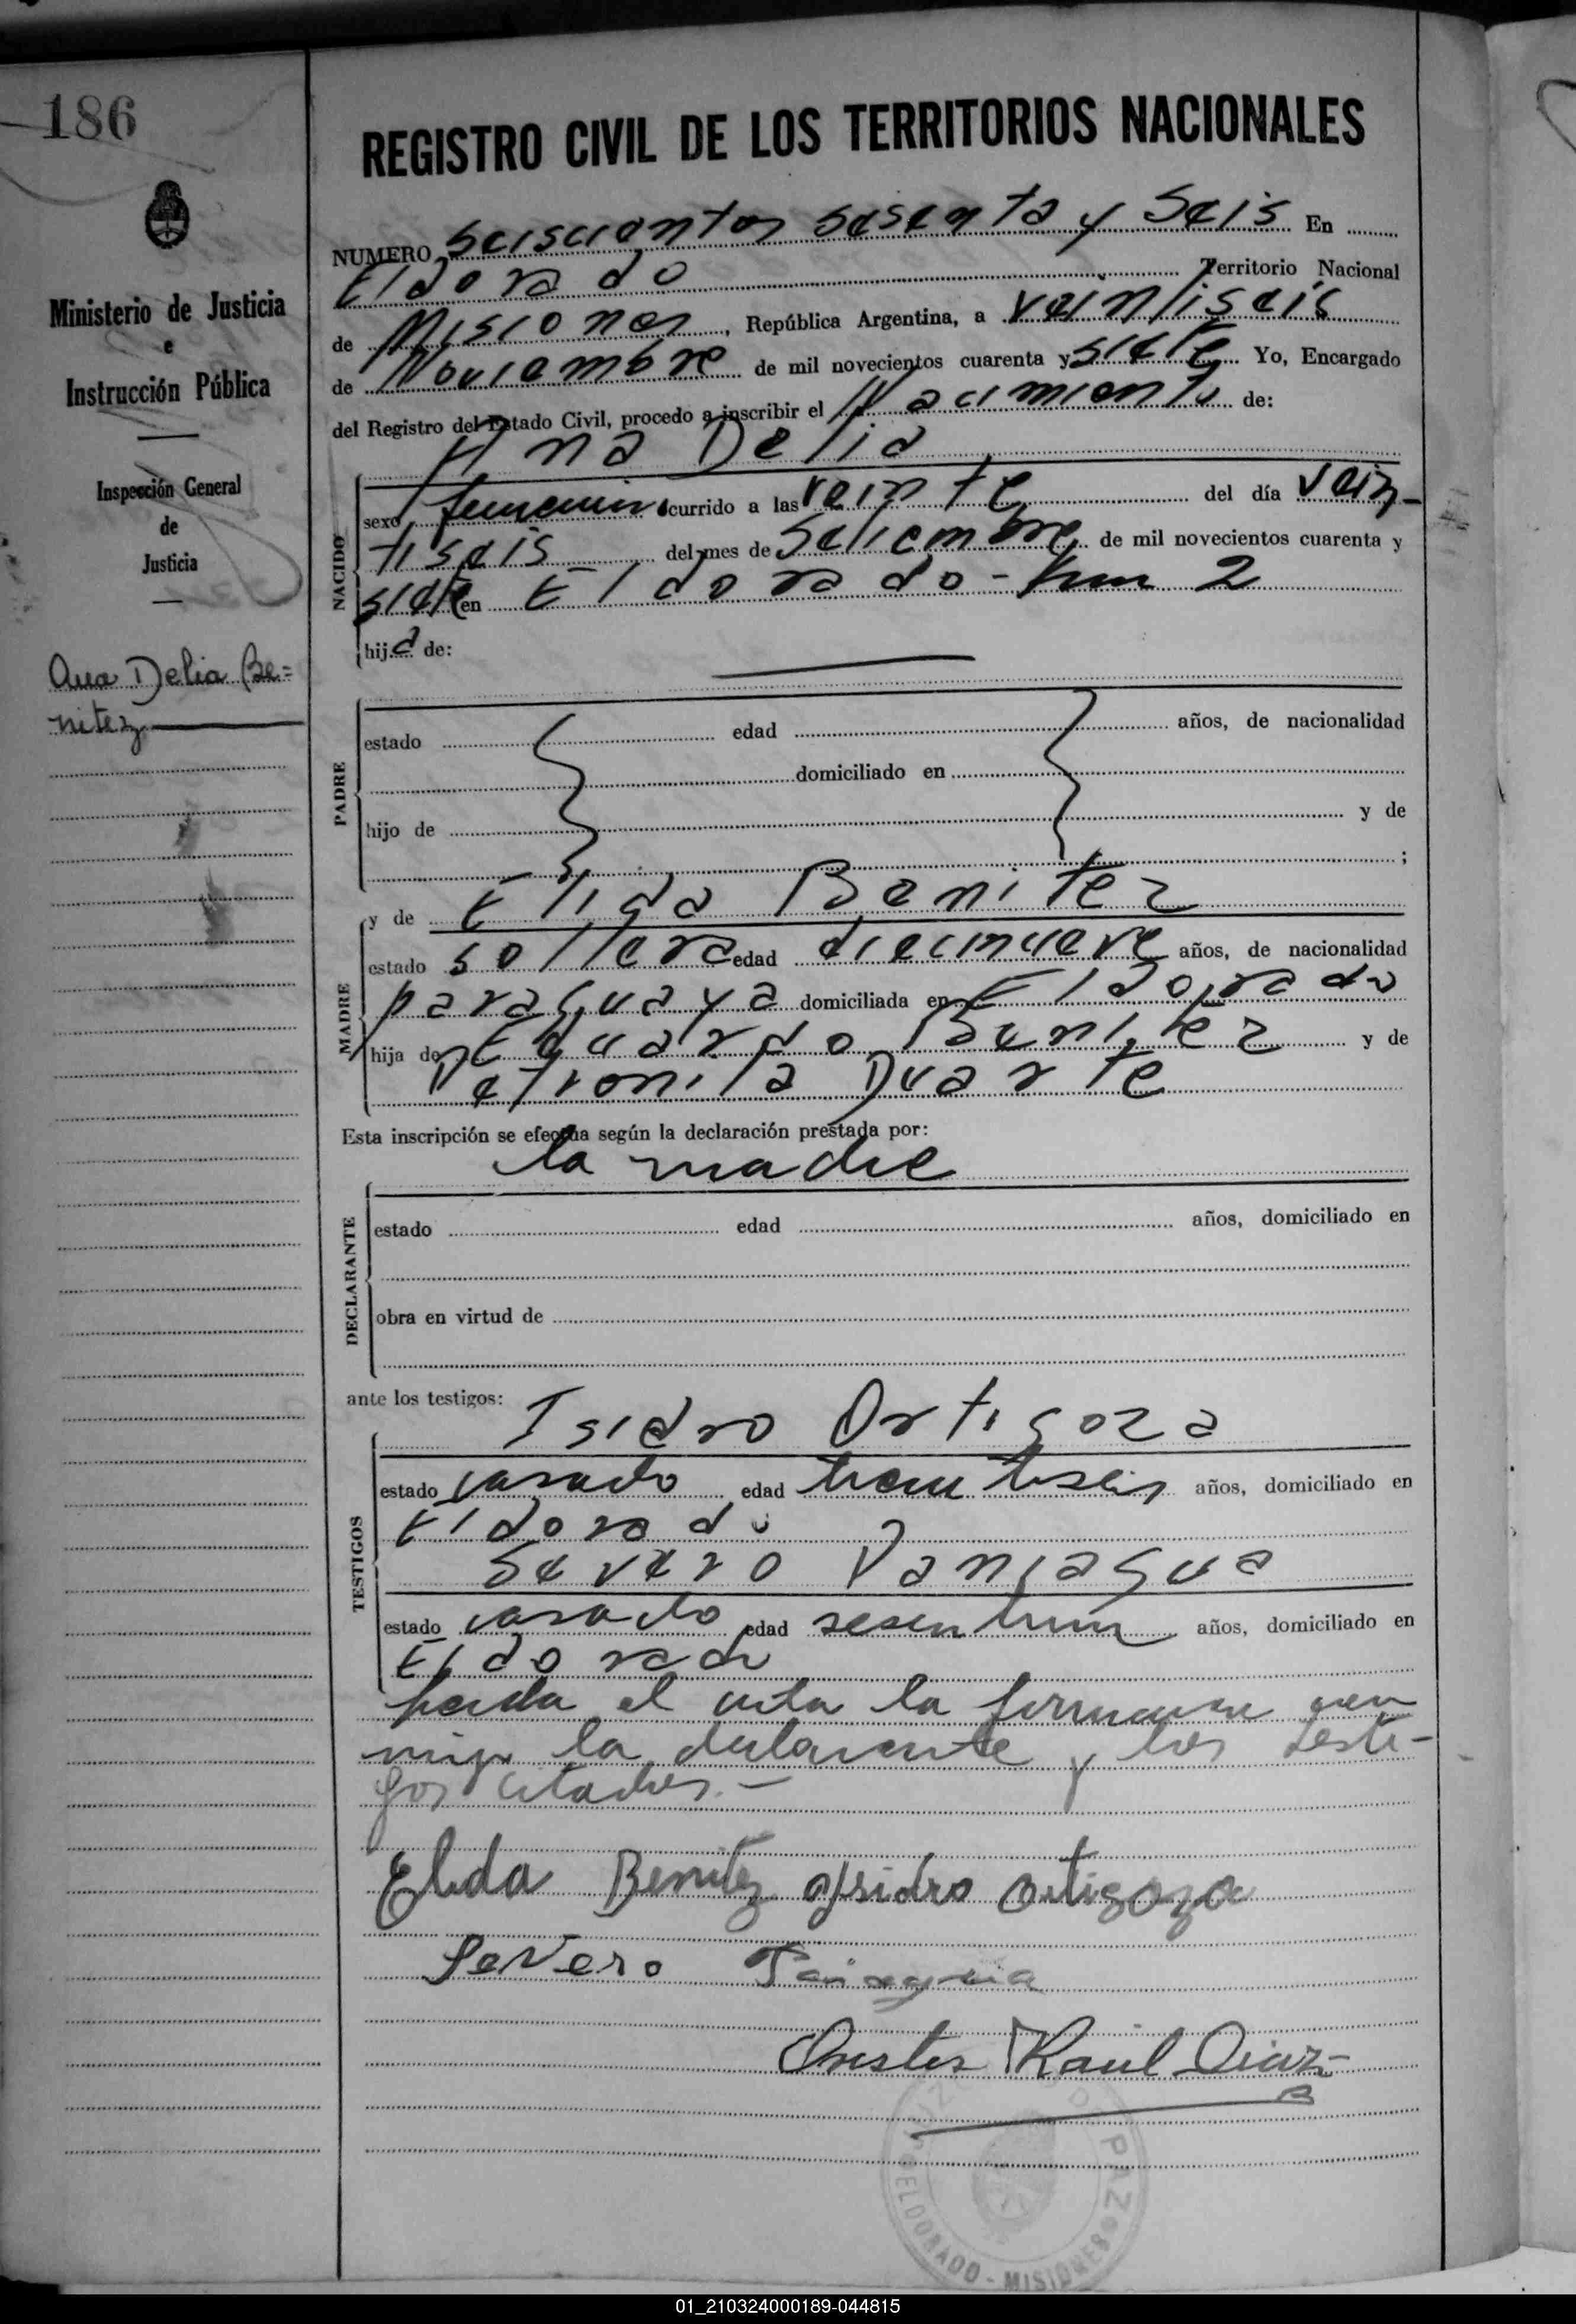 186
REGISTRO CIVIL DE LOS TERRITORIOS NACIONALES
NUMERO Seiscientos sesenta y Seis En
Eldorado Territorio Nacional
de Misiones, República Argentina, a veintiseis
de Noviembre de mil novecientos cuarenta y siete Yo, Encargado
del Registro del Estado Civil, procedo a inscribir el Nacimiento de:
Ana Delia
Ministerio de Justicia
e
Instrucción Pública
Inspección General
de
Justicia
Ana Delia Be=
nitez
NACIDO
sexo femenino ocurrido a las veinte del día vein-
tiseis del mes de Setiembre de mil novecientos cuarenta y
siete en Eldorado - km 2
hija de:
PADRE
estado edad años, de nacionalidad
domiciliado en
hijo de y de
;
MADRE
y de Elida Benitez
estado soltera edad diecinueve años, de nacionalidad
paraguaya domiciliada en Eldorado
hija de Eduardo Benitez y de
Petronila Duarte
Esta inscripción se efectúa según la declaración prestada por:
la madre
DECLARANTE
estado edad años, domiciliado en
obra en virtud de
ante los testigos:
TESTIGOS
Isidro Ortigoza
estado casado edad treintiseis años, domiciliado en
Eldorado
Severo Paniagua
estado casado edad sesentiun años, domiciliado en
Eldorado
el acta la con
migo la declarante y los testi-
gos citados.-
Elida Benitez Isidro Ortigoza
Severo
Orestes Raul Diaz
JUZGADO DE PAZ
ELDORADO - MISIONES
01_210324000189-044815